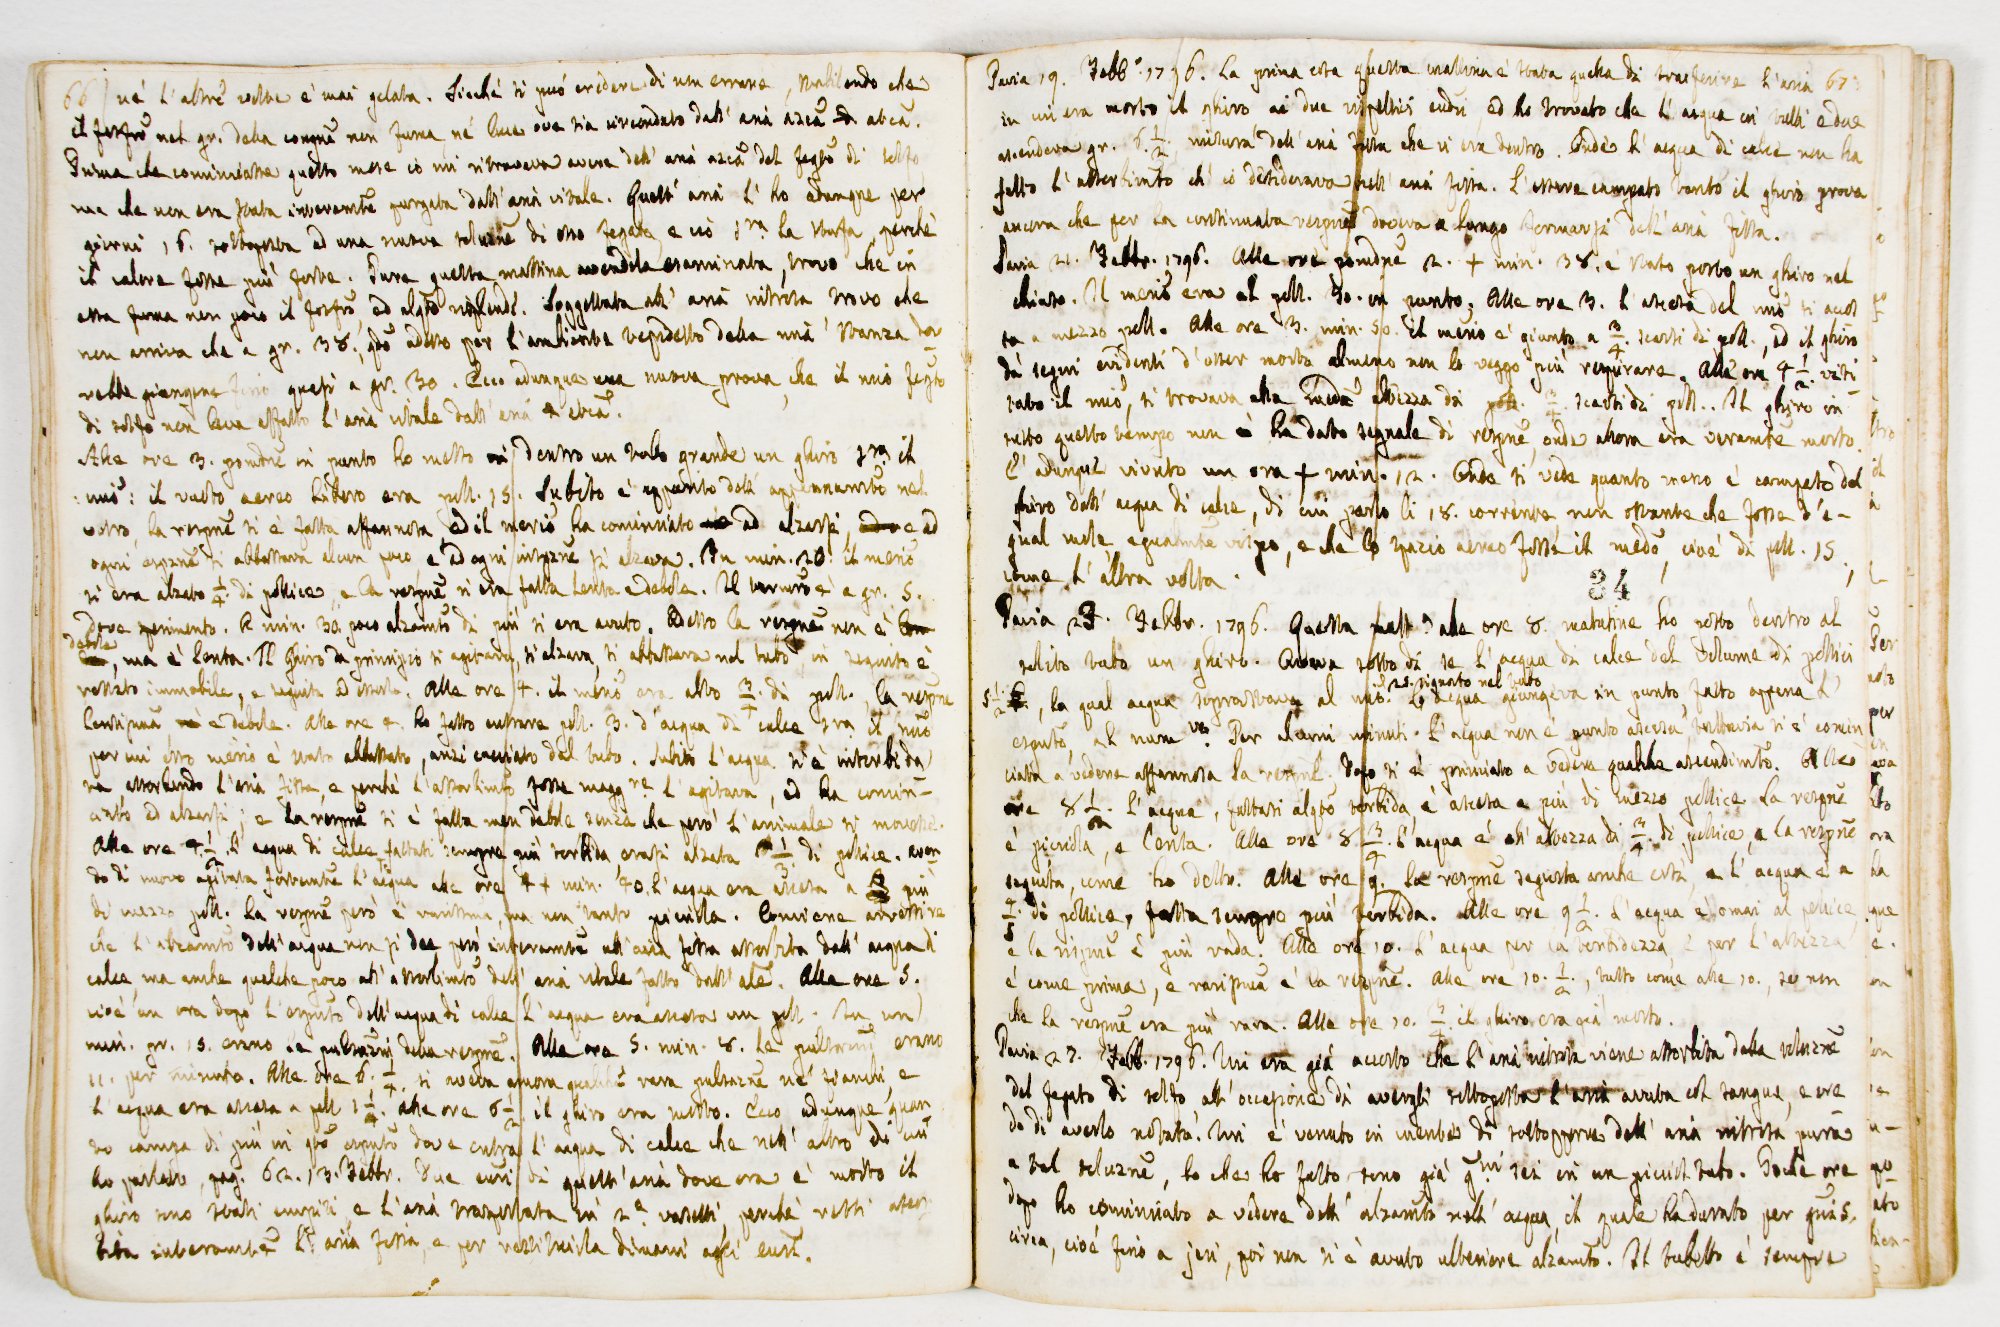 66 né l'altre volte è mai gelata. Sicché si può credere di un errore, stabilendo che
il fosfro nel gr. della congne non fuma né luce ove sia circondato dall' aria
Prima che cominciasse questo mese io mi ritrovava avere dell' aria del fegto di solfo
ma che non era stata interamte purgata dall' aria vitale. Quest' aria l' ho adunque per
giorni 16. sottoposta ad una nuova soluzne di esso fegato, e ciò la stufa, perché
il calore fosse più forte. Pure questa mattina esaminata, trovo che in
essa fuma non poco il fosfro, ed alqto risplende. Soggettata all' aria nitrosa trovo che
non arriva che a gr. 38., qdo adesso per l'ambiente della mia stanza do-
vrebbe giungere fino quasi a gr. 30. Ecco adunque una nuova prova, che il mio fegto
di solfo non leva affatto l'aria vitale dall' aria
Alle ore 3. pomdne in punto ho messo dentro un tubo grande un ghiro il
mio: il vuoto aereo libero era poll. 15. Subito è apparito dell' nel
vetro, la respne si è fatta affannosa, ed il merio ha cominciato ad alzarsi, e ad
ogni espne si abbassava alcun poco e ad ogni inspzne si alzava. In min. 20. il merio
si era alzato 1/4. di pollice, e la respne si era fatta lenta e debole. Il è a gr. 5.
dove sperimento. A min. 30. poco alzamto di più si era avuto. Adesso la respne non è
debole, ma è lenta. Il ghiro da principio si agitava, si alzava, si abbassava nel tubo, in seguito è
restato immobile, e seguita ad esserlo. Alle ore 4. il merio era alto 3/4. di poll., la respne
lentissima e debole. Alle ore 4. ho fatto entrare poll. 3. d'acqua di calce il mio
per cui esso merio è stato abbassato, anzi cacciato dal tubo. Subito l'acqua si è intorbida
ta assorbendo l'aria fissa, e perché l'assorbimto fosse magg.re l'agitava, ed ha comin-
ciato ad alzarsi; e la respne si è fatta men debole senza che però l'animale si movesse.
Alle ore 4. 1/2. l' acqua di calce fattasi sempre più torbida erasi alzata 1/3 di pollice. Aven
do di nuovo agitata fortemte l'acqua alle ore 4 + min. 40. l'acqua era ascesa a più
di mezzo poll. La respne però è rarissima, ma non tanto piccola. Conviene avvertire
che l'alzamto dell'acqua non si dee però interamte all' aria fissa assorbita dall' acqua di
calce, ma anche qualche poco all' assorbimto dell' aria vitale fatto dall' ale. Alle ore 5.
cioè un ora dopo l'esputo dell'acqua di calce l'acqua era ascesa un poll. In un
min. gr. 15. erano le pulsazni della respne. Alle ore 5. min. 8. le pulsazni erano
11. per minuto. Alle ore 6. 1/4. si aveva ancora qualche rara pulsazne ne' fianchi, e
l'acqua era ascesa a poll 1 1/4. Alle ore 6 1/2. il ghiro era morto. Ecco adunque quan
to campa di più in qto esputo dove entra l'acqua di calce che nell' altro di cui
ho parlato, pag. 62. 13. Febbr. Due euri di quest' aria dove ora è morto il
ghiro sono stati empiti e l'aria trasportata in 2.e vaselli, perché resti assor
bita interamte l'aria fissa, e per restituirla dimani agli euri.
Pavia 19. Febb.o 1796. La prima cosa questa mattina è stata quella di trasferire l'aria 67
in cui era morto il ghiro ai due rispettivi eudri, ed ho trovato che l'acqua in tutti e due
ascendeva gr. 6. 1/2. misura dell' aria fissa che vi era dentro. Onde l'acqua di calce non ha
fatto l'assorbimto ch' io desiderava nell' aria fissa. L'essere campato tanto il ghiro prova
ancora che per la continuata respne doveva a lungo formarsi dell' aria fissa.
Pavia 21. Febbr. 1796. Alle ore pomdne 2. + min. 38. è stato posto un ghiro nel
chiuso. Il merio era al poll. 30. in punto. Alle ore 3. l'ascesa del mio si accos
ta a mezzo poll. Alle ore 3. min. 50. il merio è giunto a 3/4. scarsi di poll., ed il ghiro
dà segni evidenti d'esser morto almeno non lo veggo più respirare. Alle ore 4 1/2. visi
tato il mio, si trovava alla meda altezza di poll. 3/4. scarsi di poll.. Il ghiro in
tutto questo tempo non ha dato segnale di respne, onde allora era veramte morto.
È adunque vivuto un ora + min. 12. Onde si vede quanto meno è campato del
ghiro dall' acqua di calce, di cui parlo li 18. corrente, non ostante che fosse d'e-
gual mole egualmte vispo, e che lo spazio aereo fosse il medo, cioè di poll. 15.,
come l'altra volta.
34
Pavia 27. Febbr. 1796. Questa matta alle ore 8. matutine ho posto dentro al
solito tubo un ghiro. Aveva sotto di se l'acqua di calce del volume di pollici
5 1/2., la qual acqua soprastava al mio. L' acqua giungeva in punto, fatto appena l'
25. segnato nel tubo
esputo, al num.o Per alcuni minuti l'acqua non è punto ascesa, tuttavia si è comin
ciata a vedere affannosa la respne. Dopo si è principiato a vedere qualche ascendimto. Alle
ore 8 1/2. l'acqua, fattasi alqto torbida, è ascesa a più di mezzo pollice. La respne
è piccola, e lenta. Alle ore 8 3/4. l'acqua è all' altezza di 3/4. di pollice, e la respne
seguita, come ho detto. Alle ore 9. la respne seguita anche così, e l'acqua è a
4/5. di pollice, fatta sempre più torbida. Alle ore 9 1/2. l'acqua è omai al pollice,
e la respne è più rada. Alle ore 10. l'acqua per la torbidezza, e per l'altezza
è come prima, e rarissima è la respne. Alle ore 10. 1/2., tutto come alle 10., se non
che la respne era più rara. Alle ore 10. 3/4. il ghiro era già morto.
Pavia 27. Febb. 1796. Mi era già accorto che l'aria nitrosa viene assorbita dalla soluzne
del fegato di solfo all' occasione di avergli sottoposta l'aria avuta col sangue, e cre
do di averlo notato. Mi è venuto in mente di sottopporre dell' aria nitrosa pura
a tal soluzne, lo che ho fatto sono già gni sei in un piccol tubo. Poche ore
dopo ho cominciato a vedere dell' alzamto nell' acqua, il quale ha durato per gni 5.
circa, cioè fino a jeri, poi non si è avuto ulteriore alzamto. Il tubetto è sempre